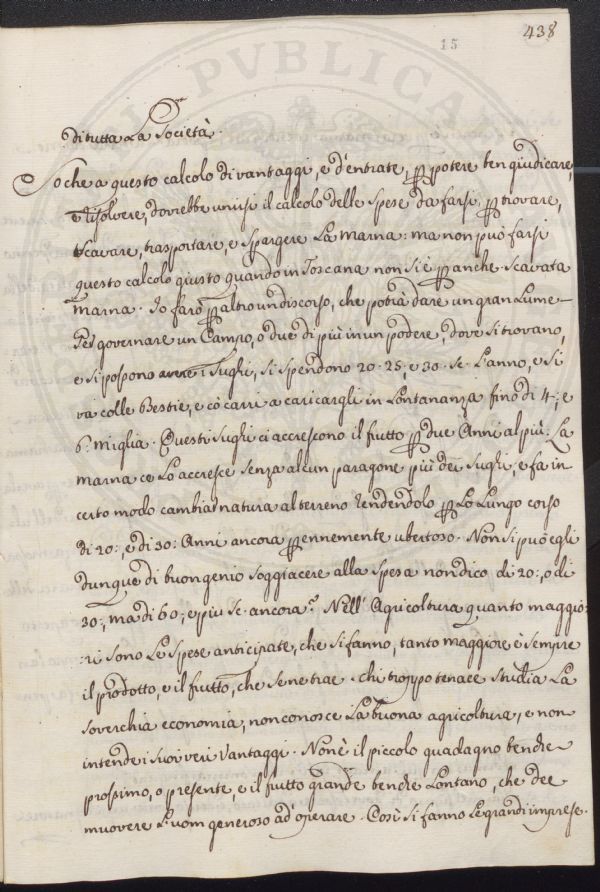 438
15
PVBLICA
di tutta La Società.
So che a questo calcolo di vantaggi, e d'entrate, p potere ben giudicare,
e risolvere, dovrebbe unirsi il calcolo delle spese da farsi, p trovare,
scavare, trasportare, e spargere La Marna: ma non può farsi
questo calcolo giusto quando in Toscana non si è p anche scavata
Marna. Io farò p altro un discorso, che potrà dare un gran Lume.
Per governare un Campo, o due di più in un podere, dove si trovano,
e si possono avere i Sughi, si spendono 20. 25. e 30. Sc. L'anno, e si
và colle Bestie, e co' carri a caricargli in Lontananza fino di 4:, e
6. miglia. Questi Sughi ci accrescono il frutto p due Anni al più. La
Marna ce Lo accresce senza alcun paragone più dei Sughi, e fa in
certo modo cambiar natura al terreno rendendolo p Lo Lungo corso
di 20:, e di 30: Anni ancora pennemente ubertoso. Non si può egli
dunque di buon genio soggiacere alla spesa non dico di 20:, o di
30:, ma di 60:, e più Sc. ancora? Nell' Agricoltura quanto maggio:
:ri sono Le Spese anticipate, che si fanno, tanto maggiore è sempre
il prodotto, e il frutto, che se ne trae. chi troppo tenace studia La
soverchia economia, non conosce La buona agricoltura, e non
intende i suoi veri Vantaggi. Non è il piccolo guadagno benche
prossimo, o presente, e il frutto grande benche Lontano, che dee
muovere L'uom generoso ad operare. Così si fanno Le grandi imprese.